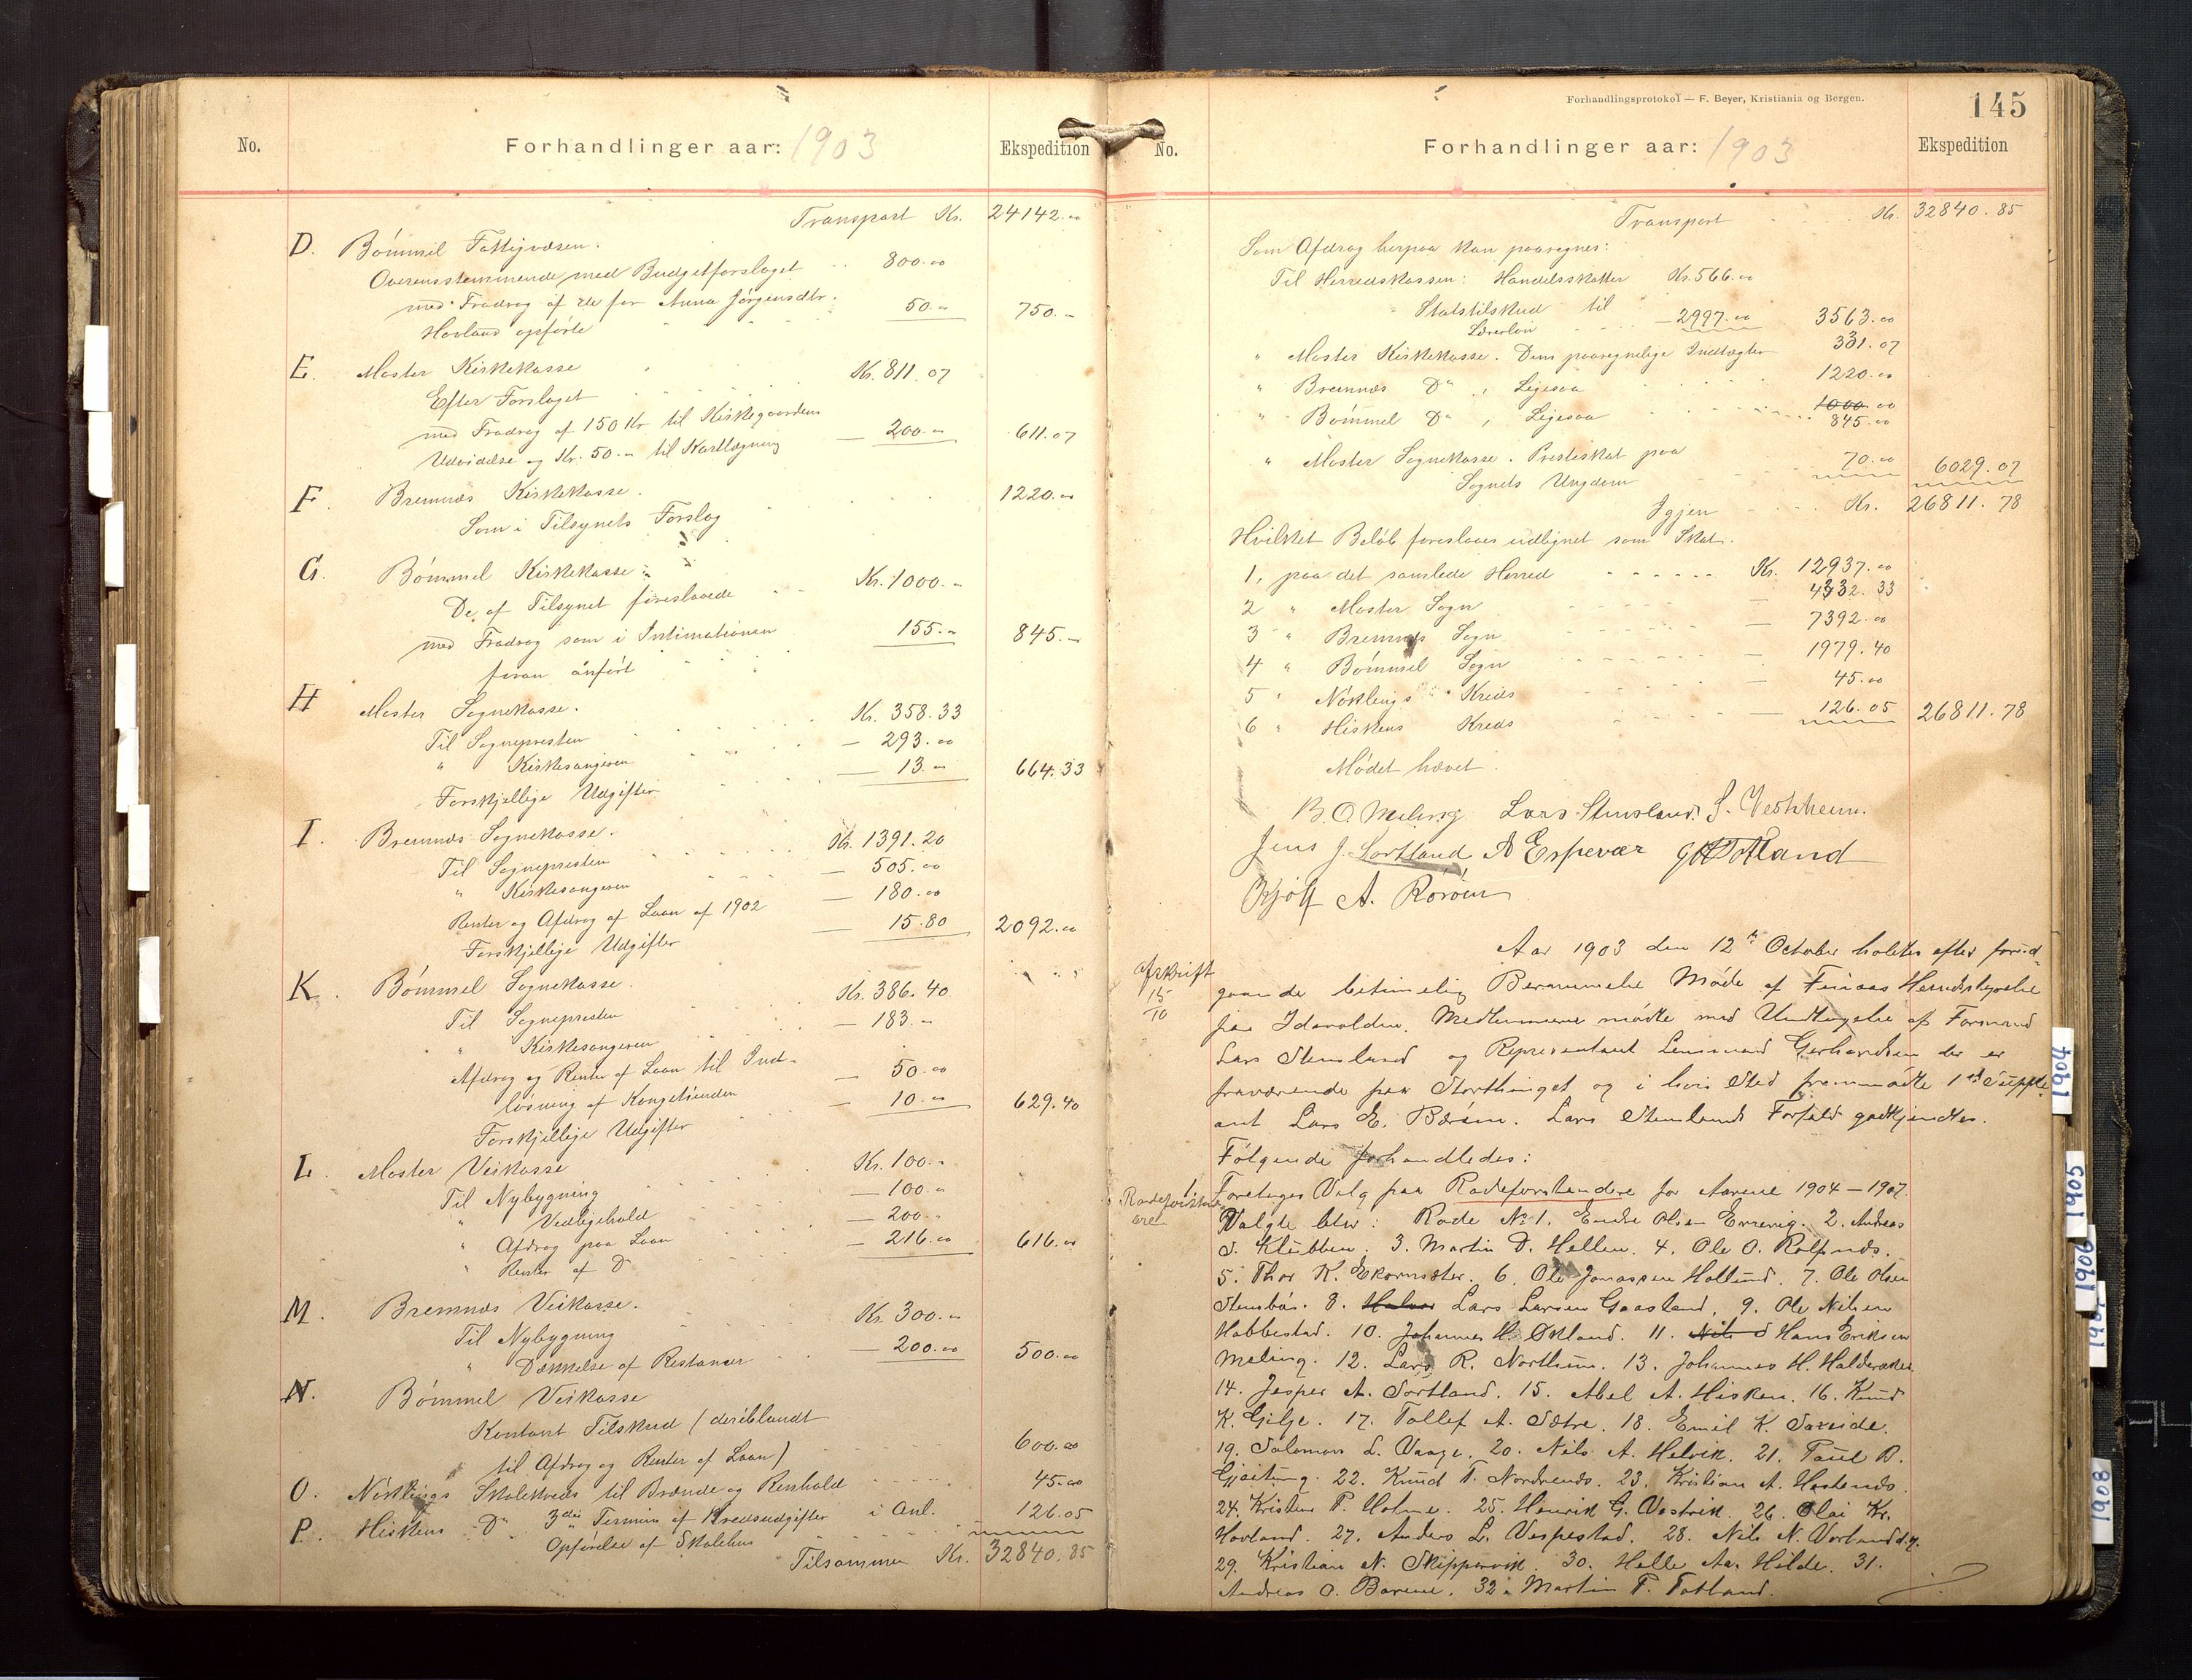 No.
Forhandlinger aar: 1903
Ekspedition
Transport Kr. 24142.00
D. Bömmel Fattigvæsen.
Overensstemmende med Budgetforslaget 800.00
med Fradrag af de for Anna Jörgensdtr.
Hovland opförte 50.- 750.-
E. Moster Kirkekasse
Efter Forslaget Kr. 811.07
med Fradrag af 150 Kr til Kirkegaardens
Udvidelse og Kr. 50.- til Kartlægning - 200.- 611.07
F. Bremnæs Kirkekasse.
Som i Tilsynets Forslag 1220.00
G. Bömmel Kirkekasse
De af Tilsynet foreslaaede Kr. 1000.-
med Fradrag som i Intimationen
foran anfört 155.- 845.-
H Moster Sognekasse.
Til Sognepresten Kr. 358.33
" Kirkesangeren - 293.00
Forskjellige Udgifter - 13.- 664.33
I. Bremnæs Sognekasse.
Til Sognepresten Kr. 1391.20
" Kirkesangeren - 505.00
Renter og Afdrag af Laan af 1902 - 180.00
Forskjellige Udgifter - 15.80 2092.00
K. Bömmel Sognekasse.
Til Sognepresten Kr. 386.40
" Kirkesangeren - 183.-
Afdrag og Renter af Laan til Ind-
lösning af Kongetienden - 50.00
Forskjellige Udgifter - 10.00 629.40
L. Moster Veikasse
Til Nybygning Kr. 100.-
" Vedligehold - 100.-
" Afdrag paa Laan - 200.-
" Renter af Do - 216.00 616.00
M. Bremnæs Veikasse.
Til Nybygning Kr. 300.-
" Dækkelse af Restancer - 200.00 500.00
N. Bömmel Veikasse
Kontant Tilskud (deriblandt
til Afdrag og Renter af Laan) 600.00
O. Nöklings Skolekreds til Brænde og Renhold 45.00
P. Hiskens Do 3die Termin af Kredsudgifter i Anl.
Opförelse af Skolehus 126.05
Tilsammen Kr. 32840.85
Forhandlingsprotokol — F. Beyer, Kristiania og Bergen.
145
No.
Forhandlinger aar: 1903
Ekspedition
Transport Kr. 32840.85
Som Afdrag herpaa kan paaregnes:
Til Herredskassen: Handelsskatter Kr. 566.00
Statstilskud til
Lærerlön - 2997.00 3563.00
" Moster Kirkekasse. Dens paaregnelige Indtægter 331.07
" Bremnæs Do, Ligesaa 1220.00
" Bömmel Do, Ligesaa 1000.00
845.00
" Moster Sognekasse. Presteskat paa
Sognets Ungdom 70.00 6029.07
Igjen Kr. 26811.78
Hvilket Belöb foreslaaes udlignet som Skat.
1, paa det samlede Herred Kr. 12937.00
2 " Moster Sogn 4332.33
3 " Bremnæs Sogn - 7392.00
4 " Bömmel Sogn - 1979.40
5 " Nöklings Kreds - 45.00
6 " Hiskens Kreds - 126.05 26811.78
Mödet hævet.
B. O. Meling Lars Stensland. S. Vestvheim.
Jens J. Sortland A Espevær
A. Rorön
Afskrift
15
10
Aar 1903 den 12te October holdtes efter forud-
gaaende betimelig Berammelse Möde af Finaas Herredsstyrelse
paa Idavolden. Medlemmerne mödte med Undtagelse af Formand
Lars Stensland og Repræsentant Lensmand Gerhardsen der er
fraværende paa Storthinget og i hvis Sted fremmödte 1ste Supple-
ant Lars E. Børsen. Lars Stenslands Forfald godkjendtes.
Følgende forhandledes:
Rodeforstand-
ere
1. Foretoges Valg paa Rodeforstandere for Aarene 1904 — 1907.
Valgte blev: Rode No 1. Endre Olsen Ervevig. 2. Andreas
S. Klubben. 3. Martin D. Hellen. 4. Ole O. Rolfsnæs.
5. Thor K. Ekornsæter. 6. Ole Jonassen Hollund. 7. Ole Olsen
Stensbö. 8. Halvor Lars Larsen Gaasland. 9. Ole Nilsen
Habbestad. 10. Johannes H. Økland. 11. Nils O Hans Eriksen
Meling. 12. Lars R. Northun. 13. Johannes H. Halderaker
14. Jesper A. Sortland. 15. Abel A. Hisken. 16. Knud
K. Gilje. 17. Tollef A. Sætre. 18. Emil K. Sakseide.
19. Salomon L. Vaage. 20. Nils A. Helvik. 21. Paul B.
Gjøitung. 22. Knud T. Nordrenæs. 23. Kristian A. Hestenæs.
24. Kristen P. Holme. 25. Henrik G. Vestvik. 26. Olai Kr.
Hovland. 27. Anders L. Vespestad. 28. Nils N. Vorland d.y.
29. Kristian N. Skippervik. 30. Helle Aa. Hilde. 31.
Andreas O. Barene. 32. Martin P. Totland.
1904
1905
1906
1908